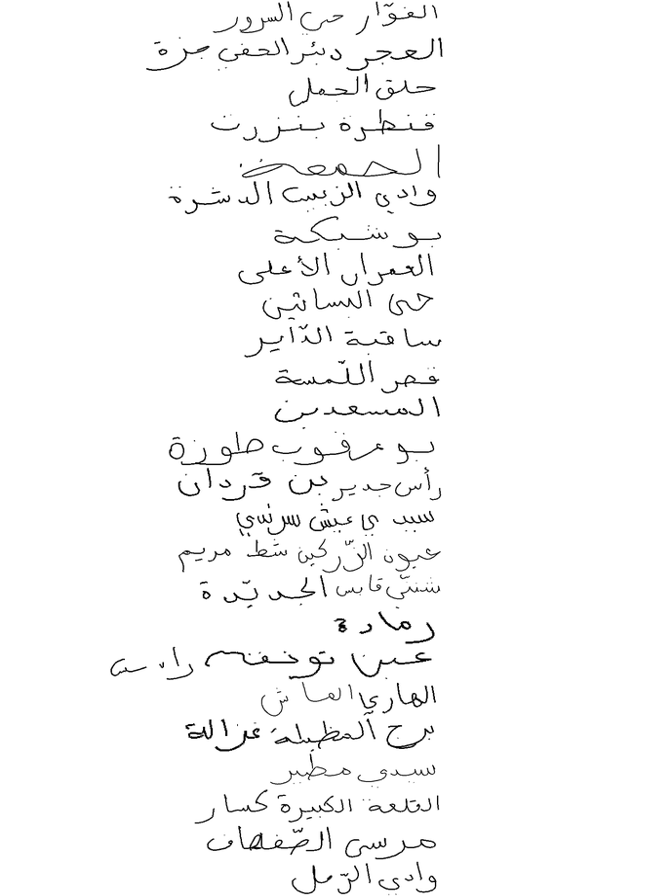 الفوّار حي السرور
العجر دبئر الحفي جزة
حلق الجمل
قنطرة بنزرت
الجمعة
وادي الزيت الدشرة
بوشبكة
العمران الأعلى
حي البساتين
ساقية الدّاير
قصر اللّمسة
المسعدين
بوعرقوب طورزة
رأس جدير بن قردان
سيدي عيش سرسي
عيون الزّركين شط مريم
شنني قابس الجديّدة
رمادة
عين
الهاري
برج الطبيلة غزالة
سيدي مطير
القلعة الكبيرة كسار
مرسى الصّفصاف
وادي الرّمل